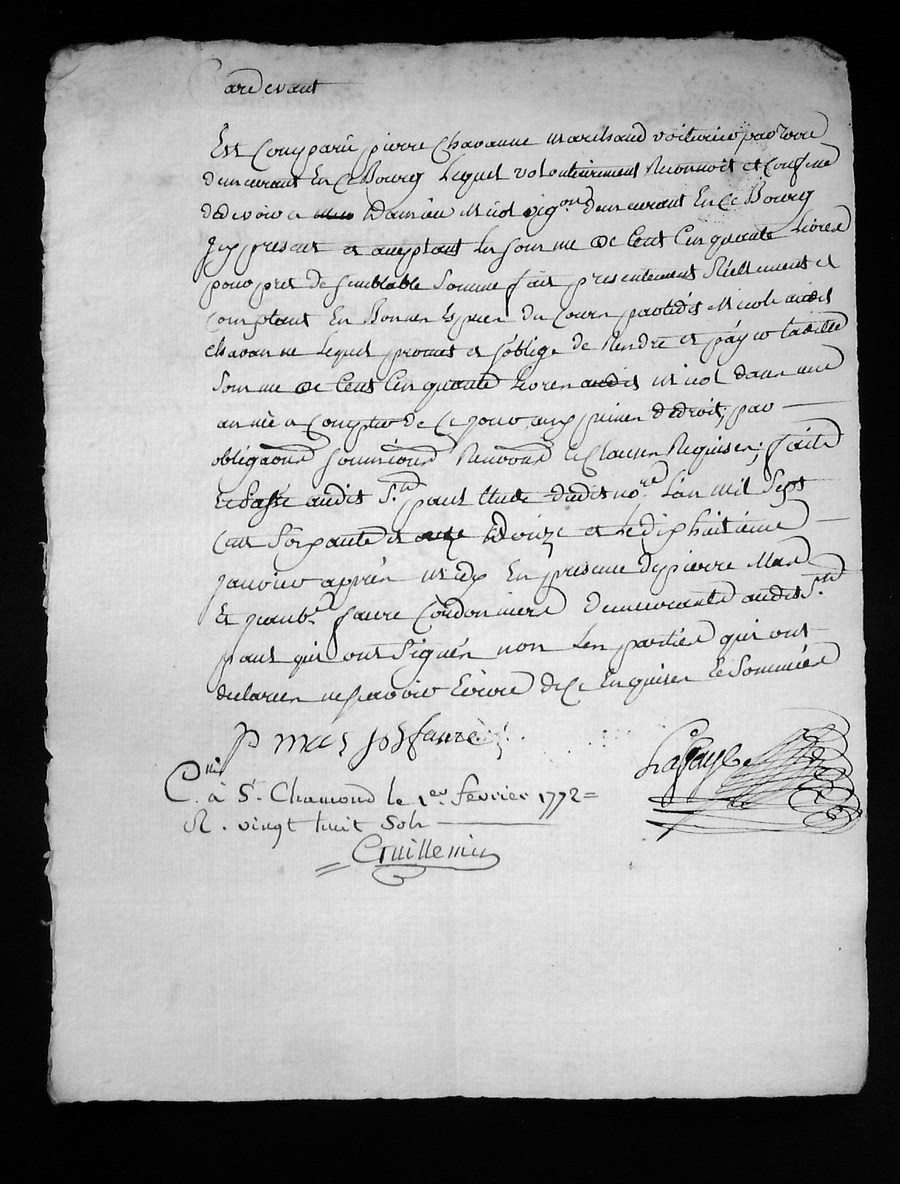 Pardevant
Est Comparu pierre Chavanne marchand voiturier par terre
demeurant En Ce Bourg Lequel volontairement Reconnoit et Confesse
de devoir a Damien Micol vigon demeurant En Ce Bourg
Icy present et aceptant La Somme de Cent Cinquante Livres
pour pret de semblable Somme fait presentement Réellement et
comptant En Bonnes Espices du Cours par ledit Micol audit
Chavanne Lequel promet et s'oblige de Rendre et páyer laditte
Somme de Cent Cinquante Livres audit micol dans une
année a Compter de Ce jour aux peines de droit, par
obligaons soumissions Renvons et Clauses Requises; fait
et Passé audit St paul Etude dudit nore L'an mil Sept
Cent Soixante et douze et Le dix huitieme
janvier aprés midy En presence de pierre Mas
Et jean bte faure Cordonniers demeurants audit St
paul qui ont Signés non Les parties qui ont
declarées ne scavoir Ecrire de Ce Enquises et Sommées
P mas j b faure
Lafaye
Clé à St. Chamond le 1er février 1772 =
R. vingt huit Sols
Cruillemin